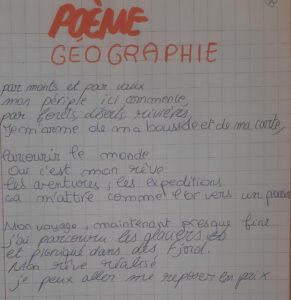 POÈME
GÉOGRAPHIE
par monts et par vaux
mon périple ici commence,
par forêts, déserts, rivières,
Je m'arme de ma boussole et de ma carte,
Parcourir le monde
Oui c'est mon rêve
les aventures, les expeditions
ça m'attire comme l'or vers un
Mon voyage, maintenant presque fini
j'ai parcouru les glaciers
et piqniqué dans des Fjord.
Mon rêve réalisé
je peux aller me reposer en paix